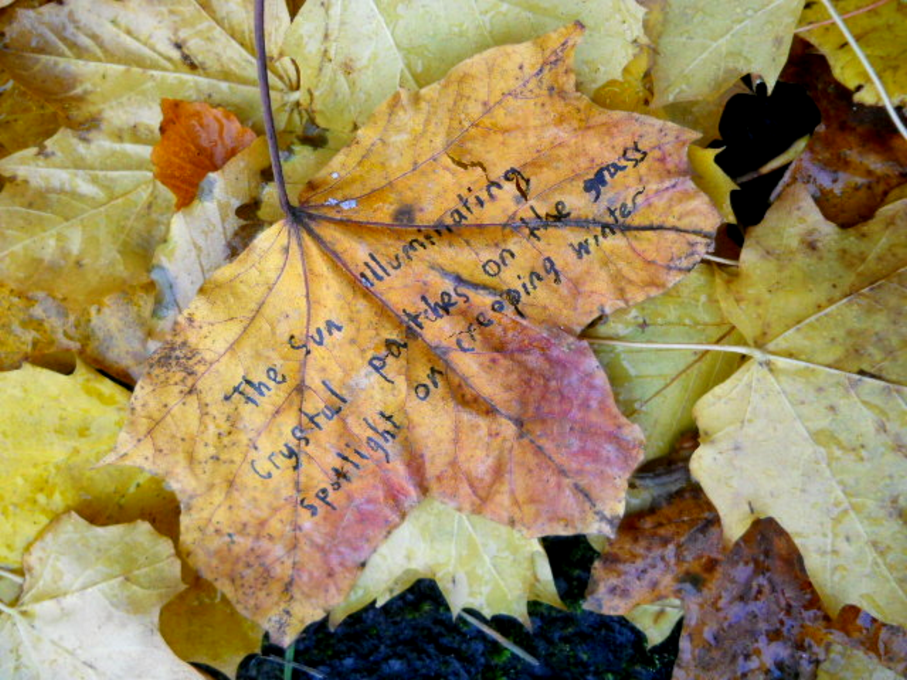 The Sun illuminating
Crystal patches on the grass
Spotlight on creeping winter